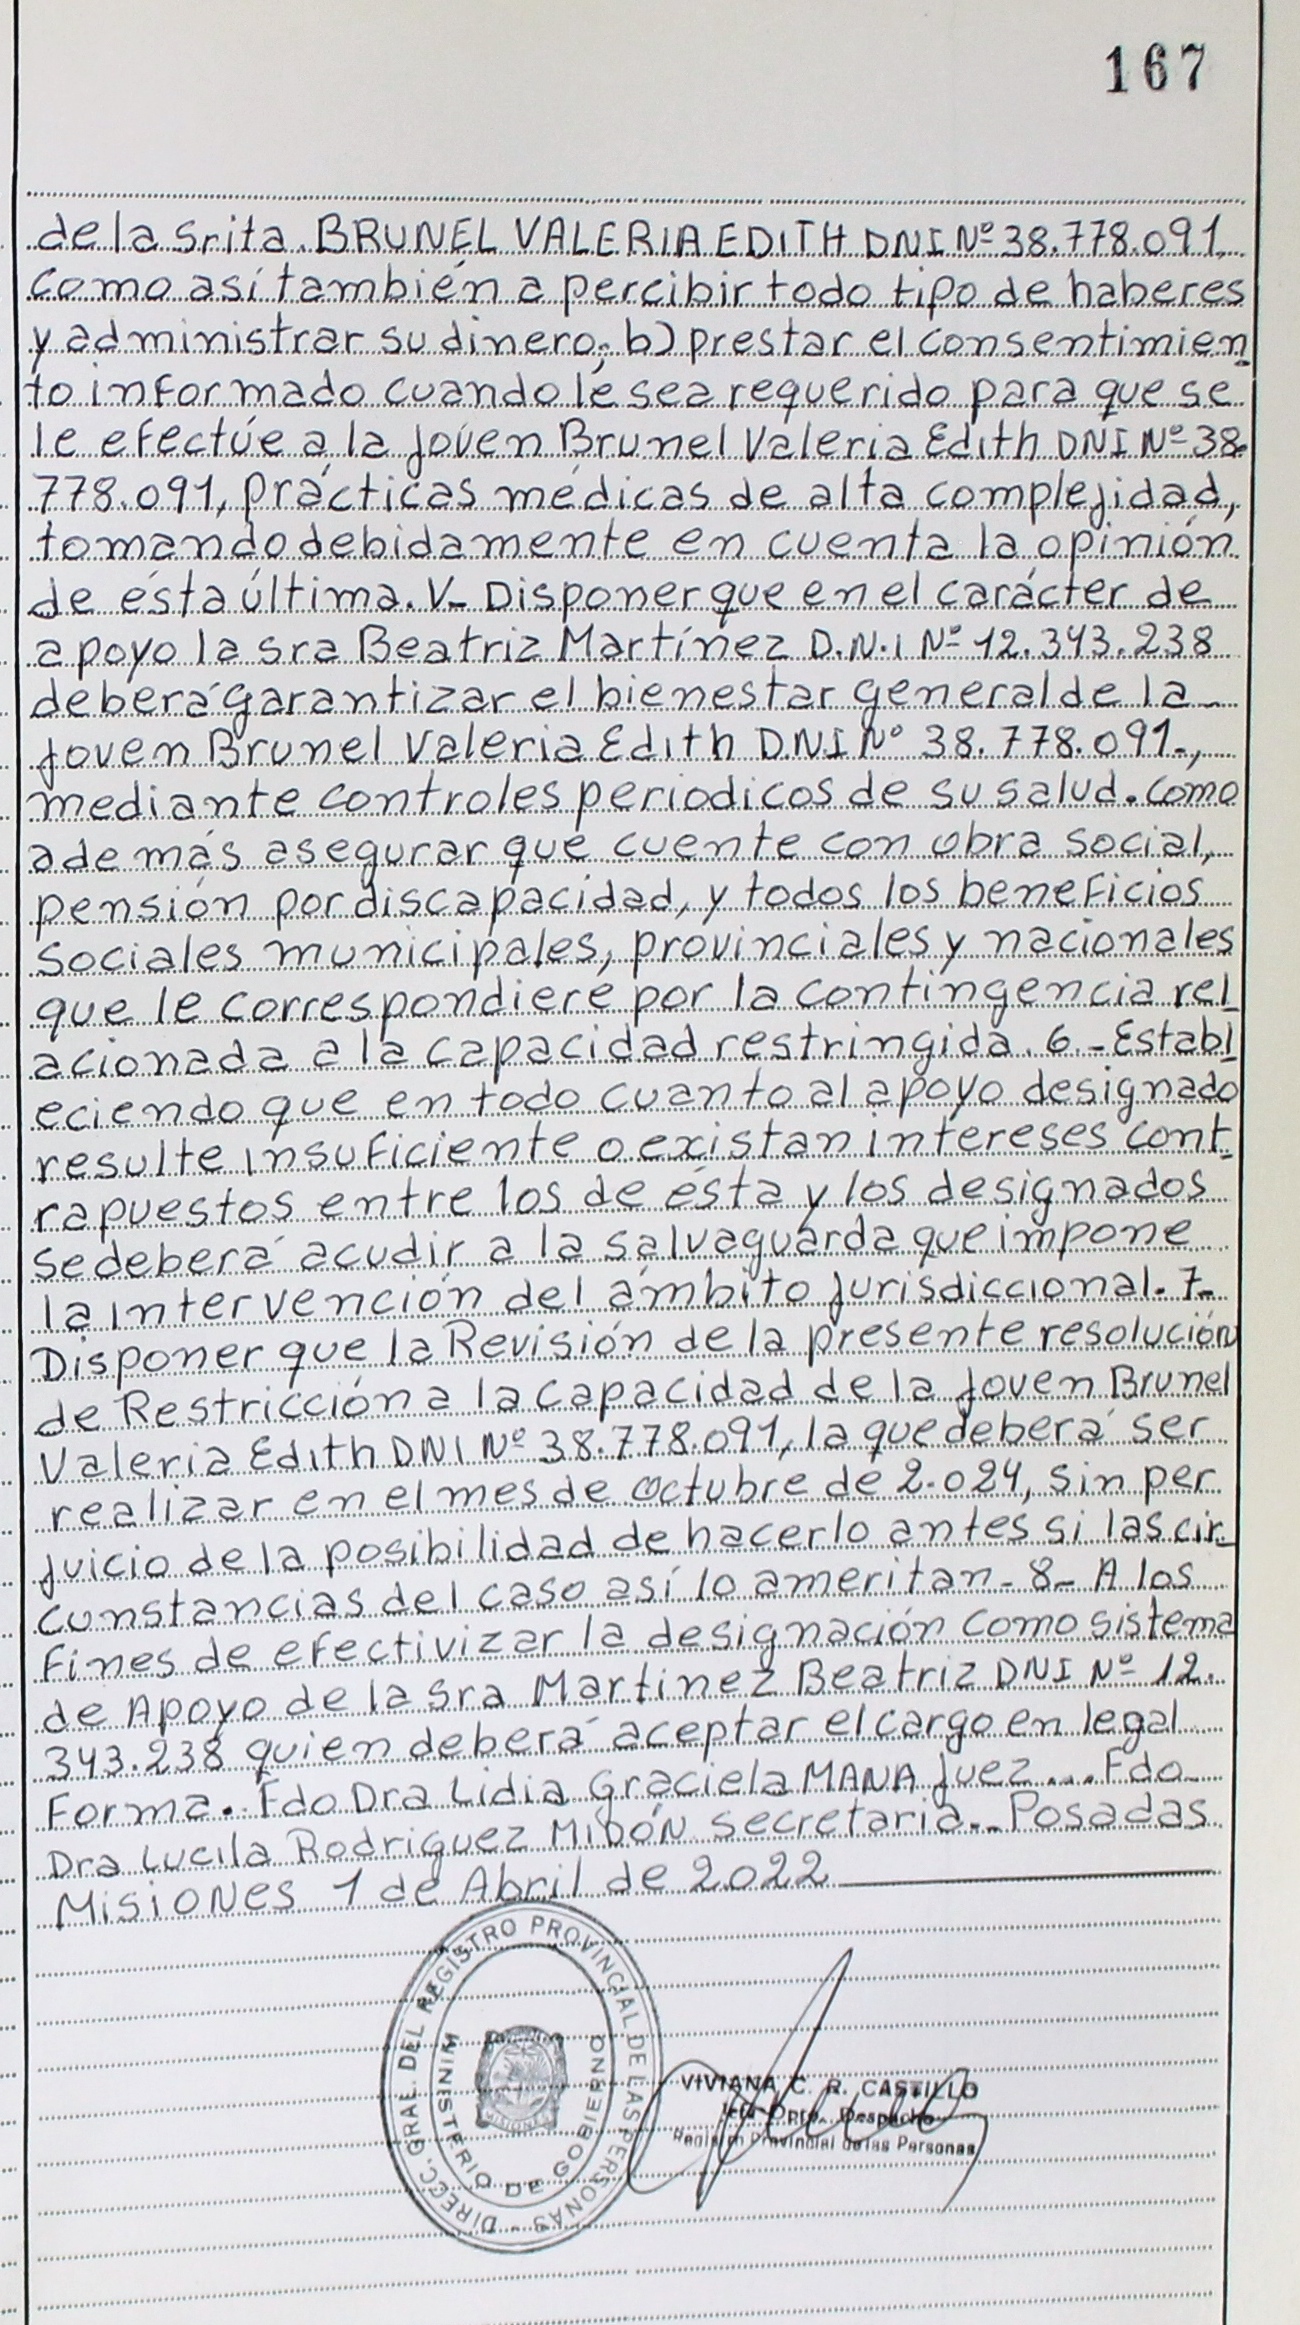 167
de la srita. BRUNEL VALERIA EDITH DNI Nº 38.778.091,
como así también a percibir todo tipo de haberes
y administrar su dinero; b) prestar el consentimien
to informado cuando le sea requerido para que se
le efectúe a la joven Brunel Valeria Edith DNI Nº 38.
778.091, prácticas médicas de alta complejidad,
tomando debidamente en cuenta la opinión
de ésta última. V- Disponer que en el carácter de
apoyo la sra Beatriz Martínez D.N.I Nº 12.343.238
deberá garantizar el bienestar general de la
joven Brunel Valeria Edith D.N.I Nº 38.778.091.,
mediante controles periodicos de su salud. como
además asegurar que cuente con obra social,
pensión por discapacidad, y todos los beneficios
sociales municipales, provinciales y nacionales
que le correspondiere por la contingencia rel
acionada a la capacidad restringida. 6.- Establ
eciendo que en todo cuanto al apoyo designado
resulte insuficiente o existan intereses cont
rapuestos entre los de ésta y los designados
se deberá acudir a la salvaguarda que impone
la intervención del ámbito jurisdiccional. 7-
Disponer que la Revisión de la presente resolución
de Restricción a la capacidad de la joven Brunel
Valeria Edith DNI Nº 38.778.091, la que deberá ser
realizar en el mes de octubre de 2.024, sin per
juicio de la posibilidad de hacerlo antes si las cir
cunstancias del caso así lo ameritan - 8- A los
fines de efectivizar la designación como sistema
de Apoyo de la sra Martinez Beatriz DNI Nº 12.
343.238 quien deberá aceptar el cargo en legal
forma. Fdo Dra Lidia Graciela MANA Juez... Fdo
Dra Lucila Rodriguez MIDÓN secretaria.. Posadas
Misiones 1 de Abril de 2.022
DIRECC. GRAL. DEL REGISTRO PROVINCIAL DE LAS PERSONAS -
MINISTERIO DE GOBIERNO
MISIONES
VIVIANA C. R. CASTILLO
Jefa Dpto. Despacho
Registro Provincial de las Personas